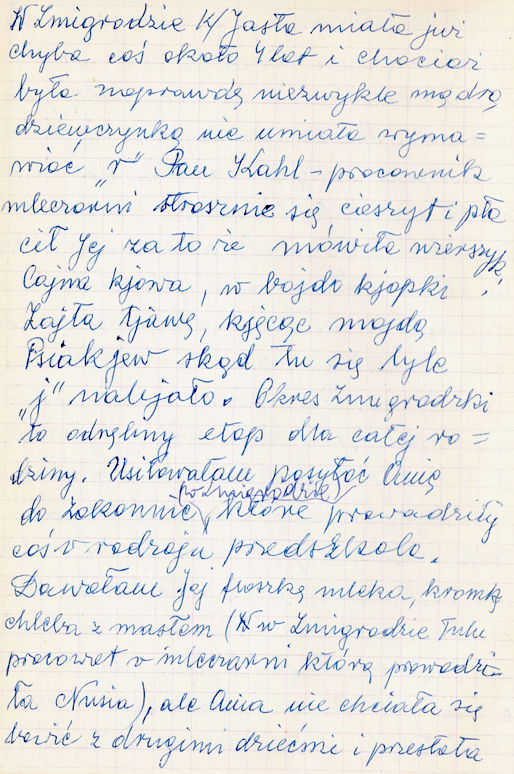 W Żmigrodzie k/Jasła miała już
chyba coś około 4 lat i chociaż
była naprawdę niezwykle mądrą
dziewczynką nie umiała wyma=
wiać „r" Pan Kahl - pracownik
mleczarni strasznie się cieszył i pła
cił Jej za to że mówiła wierszyk:
Cajna kjowa, w bojdo kjopki
Zajła tjawę, kjęcąc mojdą
Psiakjew skąd tu się tyle
„j" nalijało. Okres żmigrodzki
to odrębny etap dla całej ro=
dziny. Usiłowałam posyłać Anię
do zakonnic (w Żmigrodzie), które prowadziły
coś w rodzaju przedszkola.
Dawałam Jej flaszkę mleka, kromkę
chleba z masłem (w Żmigrodzie Tulu
pracował w mleczarni którą prowadzi-
ła Nusia), ale Ania nie chciała się
bawić z drugimi dziećmi i przestała